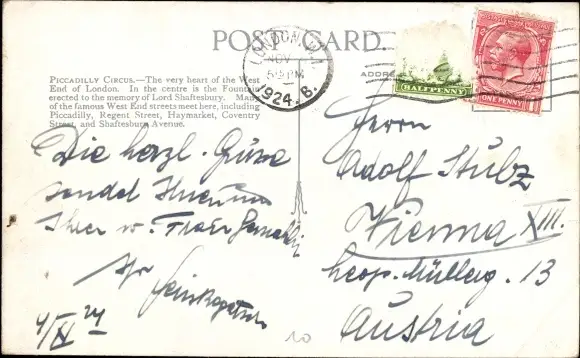 POST CARD.
PICCADILLY CIRCUS.—The very heart of the West
End of London. In the centre is the Fountain
erected to the memory of Lord Shaftesbury. Many
of the famous West End streets meet here, including
Piccadilly, Regent Street, Haymarket, Coventry
Street, and Shaftesbury Avenue.
ADDRE
LONDON W.1.
NOV
PM
1924. B.
HALFPENNY
ONE PENNY
Die herzl. Grüsse
sendet Ihnen und
Ihrer w. Frau Gemahlin
Ihr
4/XI 24
Herrn
Adolf Stulz
Vienna XIII.
Leop. Müllerg. 13
Austria
10